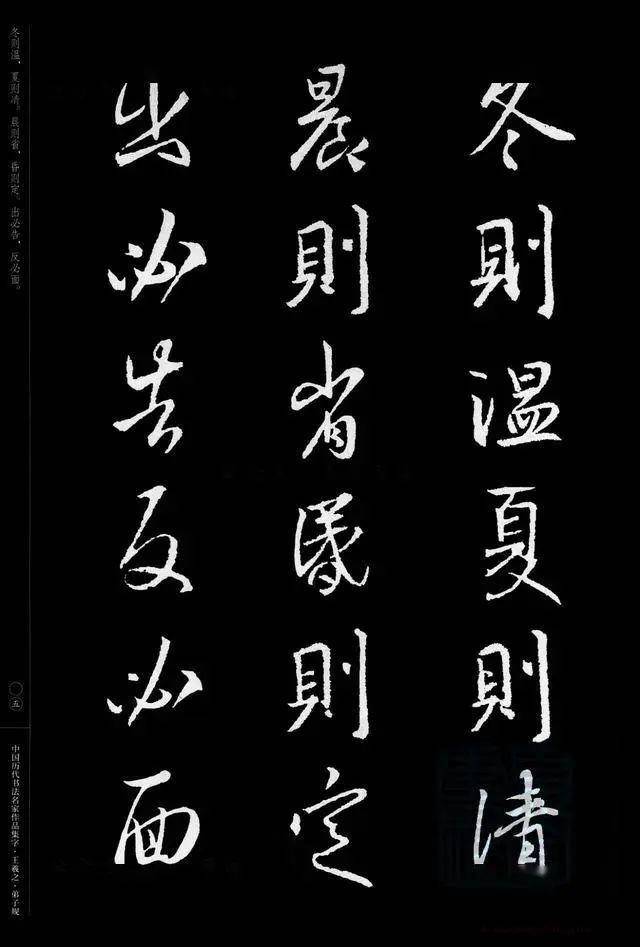 冬則溫夏則清
晨則省昬則定
出必告反必面
冬则温、夏则清。晨则省、昏则定。出必告、反必面。
〇五
中国历代书法名家作品集字·王羲之·弟子规